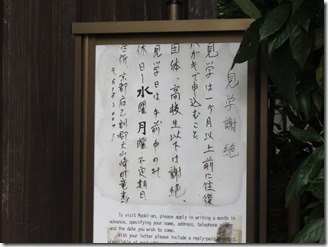 見学謝絶
見学は一ヶ月以上前に往復
ハガキで申込むこと
団体、高校生以下は謝絶、
見学日は午前中のみ
休日〜水曜月曜不定期日
住所 京都府乙訓郡大山崎町竜光
To visit Myoki-an, please apply in writing a month in
advance, specifying your name, address, telephone
and the date you wish to come.
With your letter please include a reply-paid